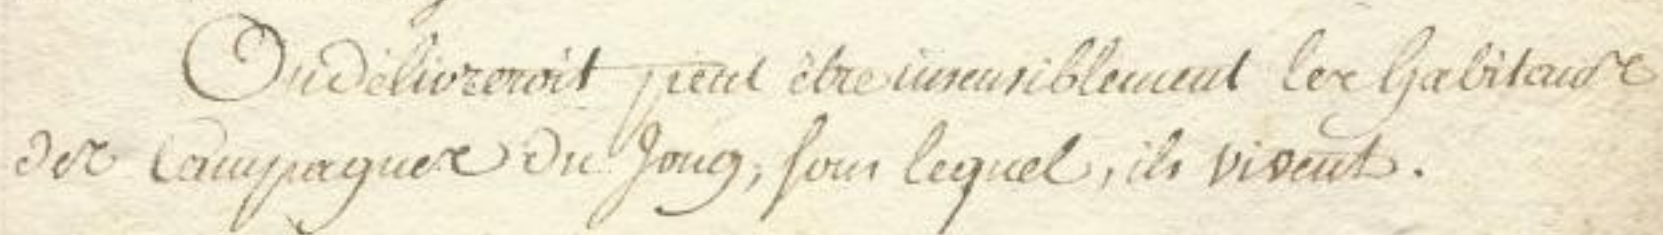 On délivreroit peut être insensiblement les habitans
des Campagnes du Joug, sous lequel, ils vivent.